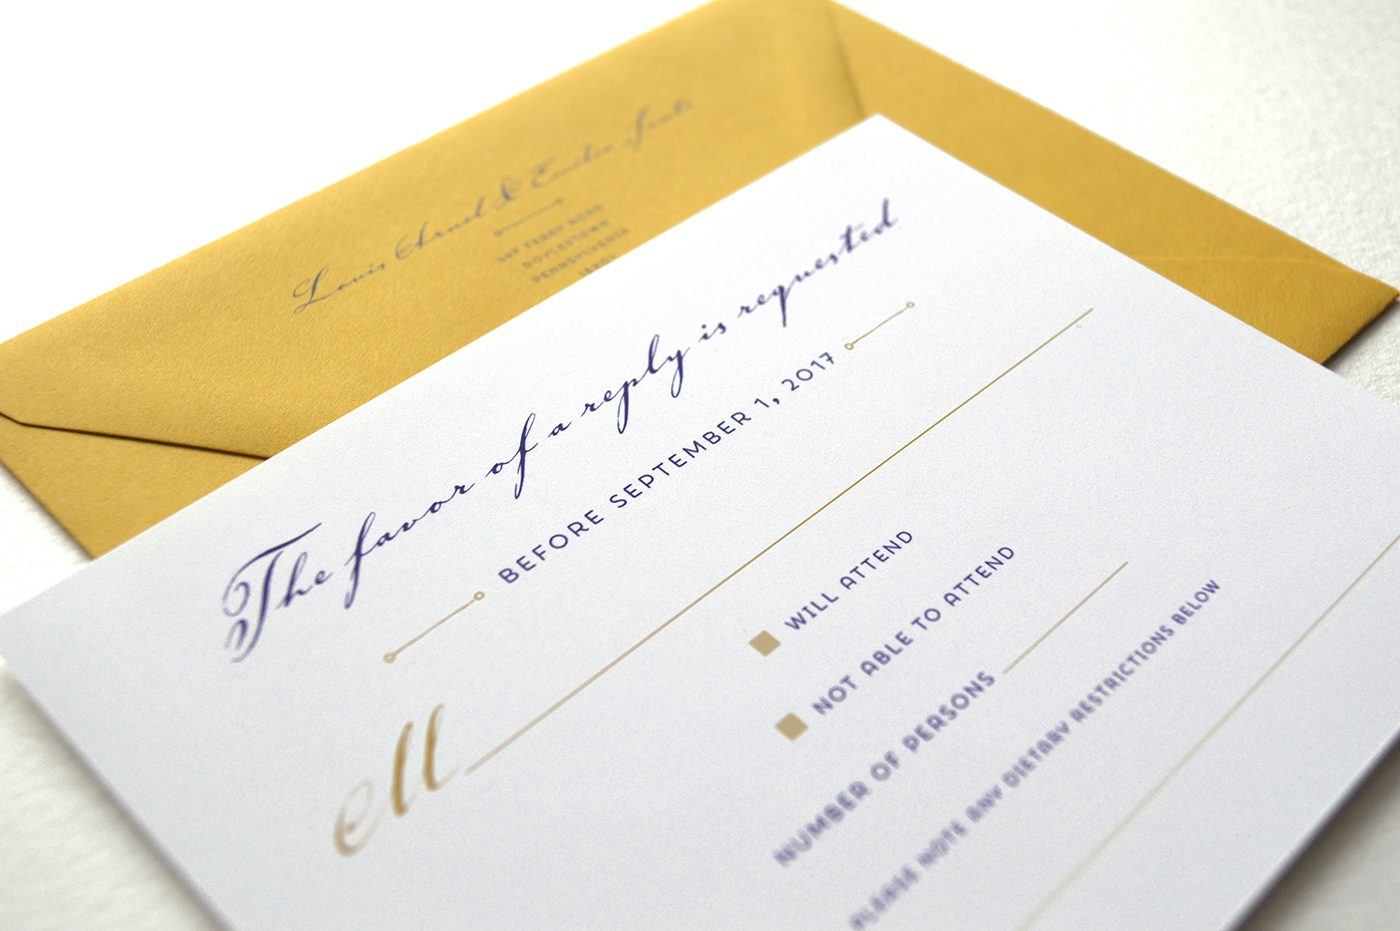 Louis Arnel & Emilie
FERRY ROAD
DOYLESTOWN
PENNSYLVANIA
18901
The favor of a reply is requested
BEFORE SEPTEMBER 1, 2017
M
WILL ATTEND
NOT ABLE TO ATTEND
NUMBER OF PERSONS
PLEASE NOTE ANY DIETARY RESTRICTIONS BELOW